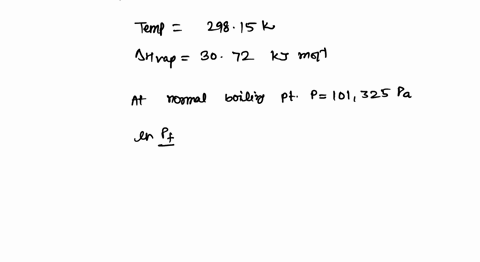 Temp = 298.15 K
ΔHvap = 30.72 kJ mol
At normal boiling pt. P = 101,325 Pa
ln Pf